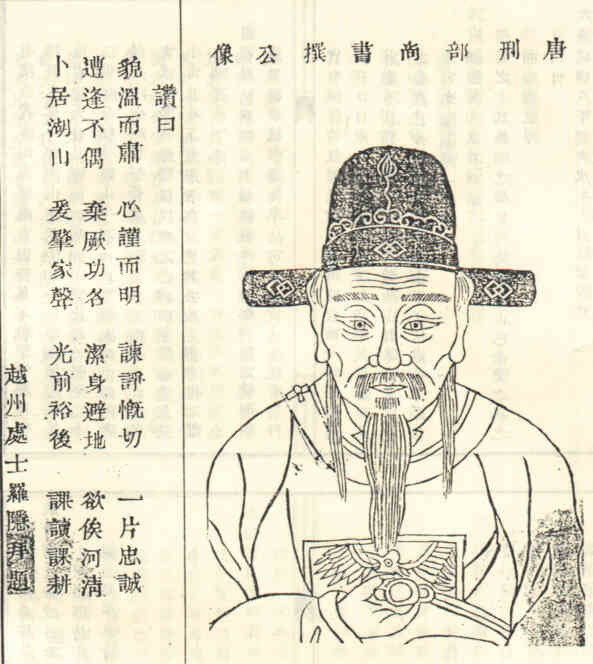 唐刑部尚書撰公像
讚曰
貌溫而肅 心謹而明 諫諍慨切 一片忠誠
遭逢不偶 棄厥功名 潔身避地 欲俟河清
卜居湖山 爰肇家聲 光前裕後 課讀課耕
越州處士羅隱拜題